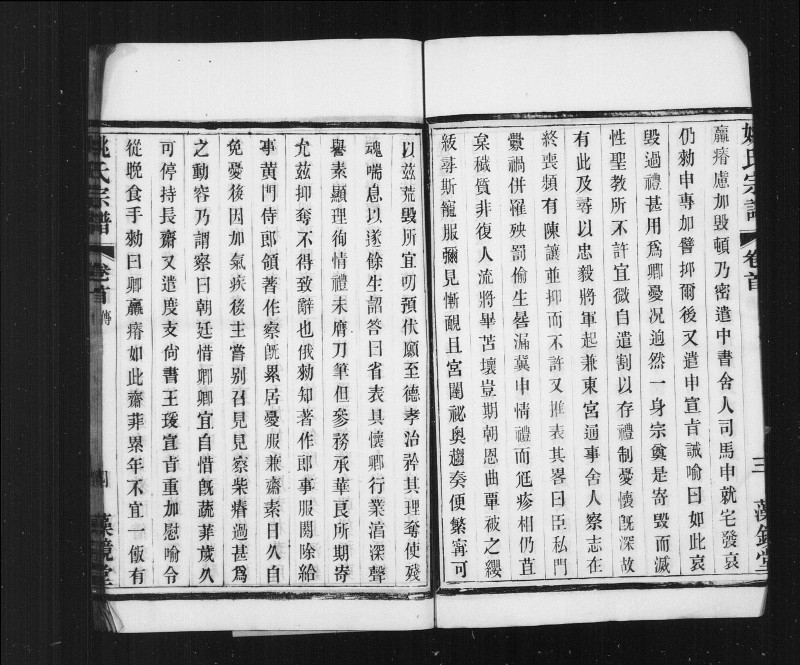 姚氏宗譜
卷首
三
藻鏡堂
羸瘠慮加毀頓乃密遣中書舍人司馬申就宅發哀
仍勑申專加譬抑爾後又遣申宣旨誡喻曰如此哀
毀過禮甚用爲卿憂況迥然一身宗奠是寄毀而滅
性聖敎所不許宜微自遣割以存禮制憂懷旣深故
有此及尋以忠毅將軍起兼東宮通事舍人察志在
終喪頻有陳讓並抑而不許又推表其畧曰臣私門
釁禍併罹殃罰偷生晷漏冀申情禮而尫疹相仍苴
枲穢質非復人流將畢苫壤豈期朝恩曲覃被之纓
紱尋斯寵服彌見慚靦且宮闥祕奥趨奏便繁寗可
以茲荒毀所宜叨預伏願至德孝治矜其理奪使殘
魂喘息以遂餘生詔答曰省表具懷卿行業湻深聲
譽素顯理徇情禮未膺刀筆但參務承華良所期寄
允茲抑奪不得致辭也俄勑知著作郎事服闋除給
事黄門侍郎領著作察旣累居憂服兼齋素日久自
免憂後因加氣疾後主嘗别召見見察柴瘠過甚爲
之動容乃謂察曰朝廷惜卿卿宜自惜旣蔬菲歲久
可停持長齋又遣度支尙書王瑗宣旨重加慰喻令
從晚食手勑曰卿羸瘠如此齋菲累年不宜一飯有
姚氏宗譜
卷首
傳
四
藻鏡堂